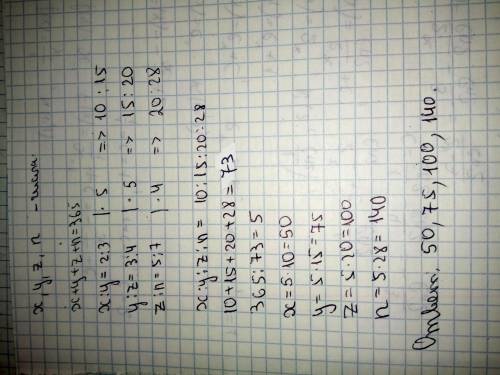 x, y, z, n - числа.
x+y+z+n=365
x:y=2:3 |·5 => 10:15
y:z=3:4 |·5 => 15:20
z:n=5:7 |·4 => 20:28
x:y:z:n= 10:15:20:28
10+15+20+28=73
365:73=5
x=5·10=50
y=5·15=75
z=5·20=100
n=5·28=140
Ответ. 50, 75, 100, 140.